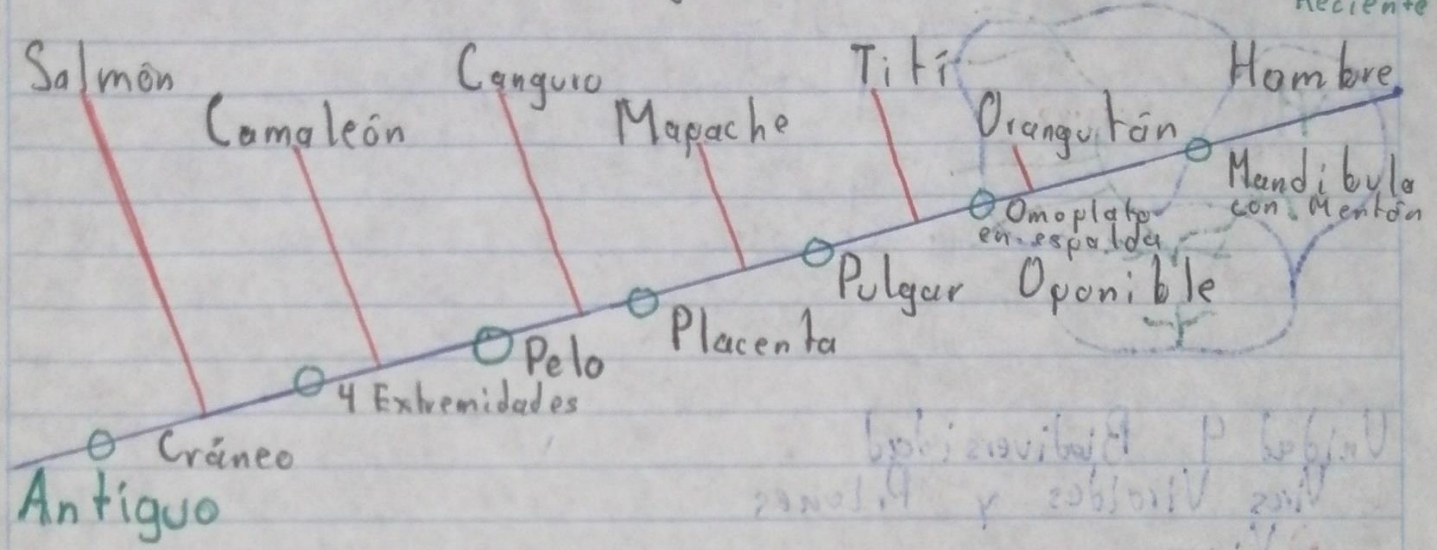 Reciente
Salmón
Camaleón
Canguro
Mapache
Tití
Orangután
Hombre
Mandibula
con Mentón
Omoplato
en espalda
Pulgar Oponible
Placenta
Pelo
4 Extremidades
Cráneo
Antiguo